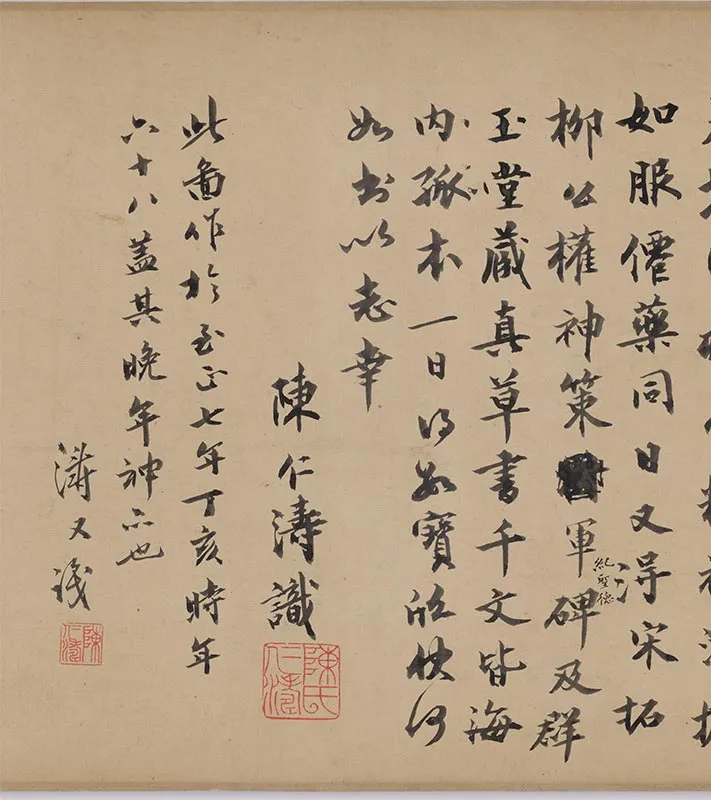 如服僊藥同日又得宋拓
柳公權神策軍碑及群
紀聖德
玉堂藏真草書千文皆海
内孤本一日得數寶欣快何
如書以志幸
陳仁濤識
陳氏仁濤
此圖作於至正七年丁亥時年
六十八蓋其晚年神品也
濤又識
陳仁濤